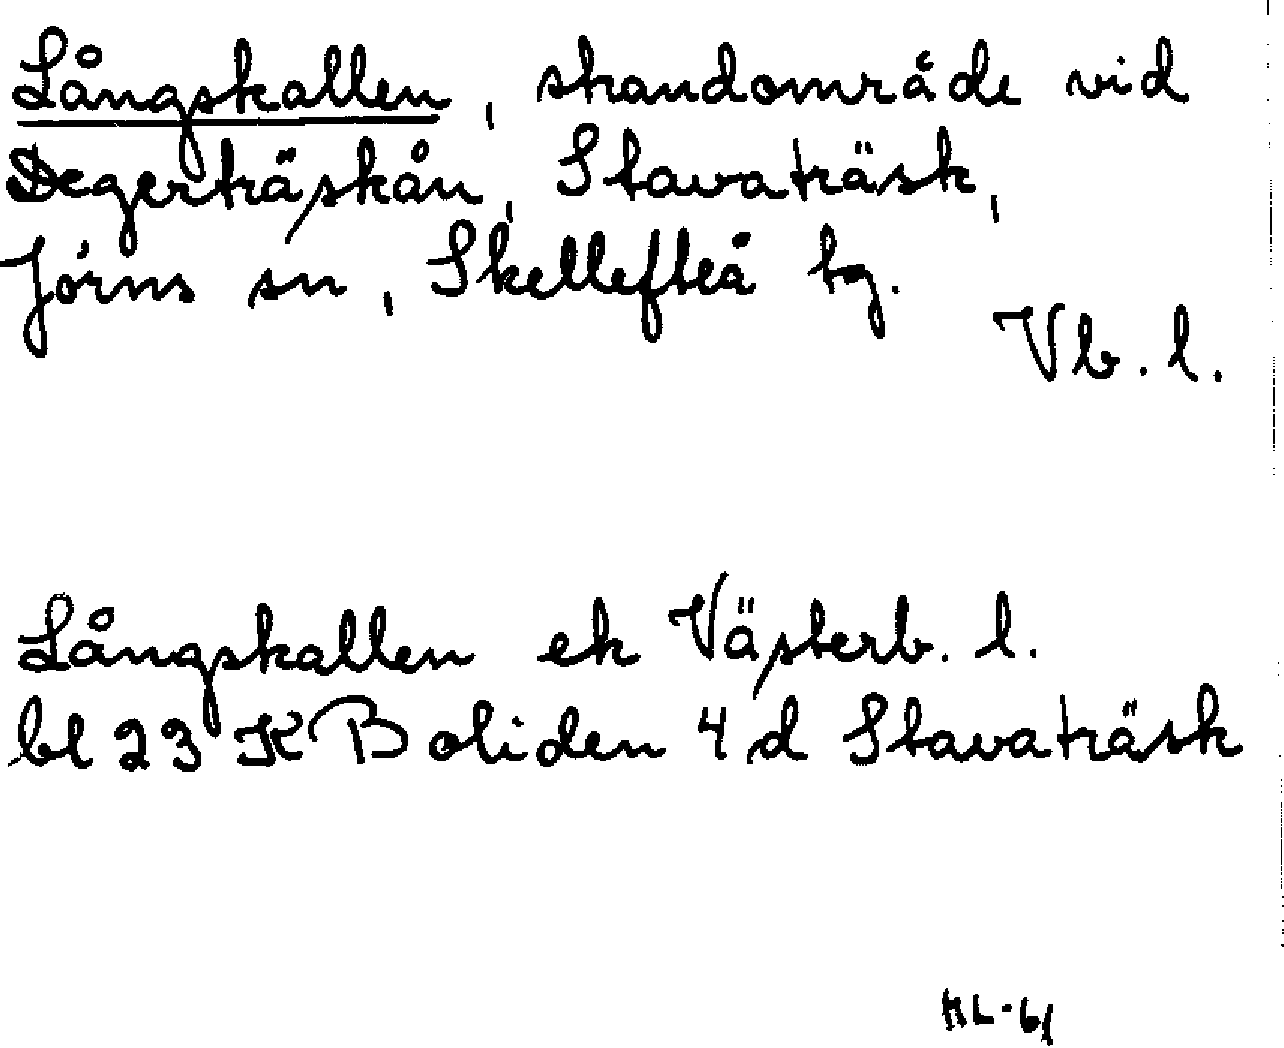 Långskallen, strandområde vid
Degerträskån, Stavaträsk,
Jörns sn, Skellefteå tg.
Vb. l.
Långskallen ek Västerb. l.
bl 23 K Boliden 4 d Stavaträsk
HL-61